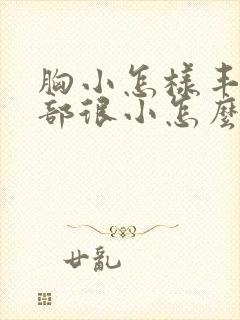 胸小怎样丰
部很小怎麼
廿亂